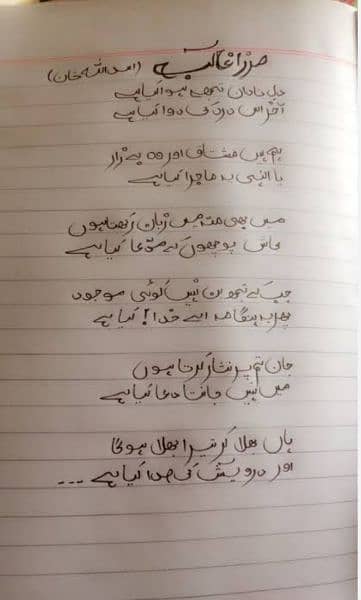 مرزا غالب (اسد اللہ خان)
دل نادان تجھے ہوا کیا ہے
آخر اس درد کی دوا کیا ہے
ہم ہیں مشتاق اور وہ بےزار
یا الہی یہ ماجرا کیا ہے
میں بھی منہ میں زبان رکھتا ہوں
کاش پوچھوں کے مدّعا کیا ہے
جب کے تجھ بن نہیں کوئی موجود
پھر یہ ہنگامہ اے خدا! کیا ہے
جان تم پر نثار کرتا ہوں
میں نہیں جانتا دعا کیا ہے
ہاں بھلا کر تیرا بھلا ہوگا
اور درویش کی صدا کیا ہے ...